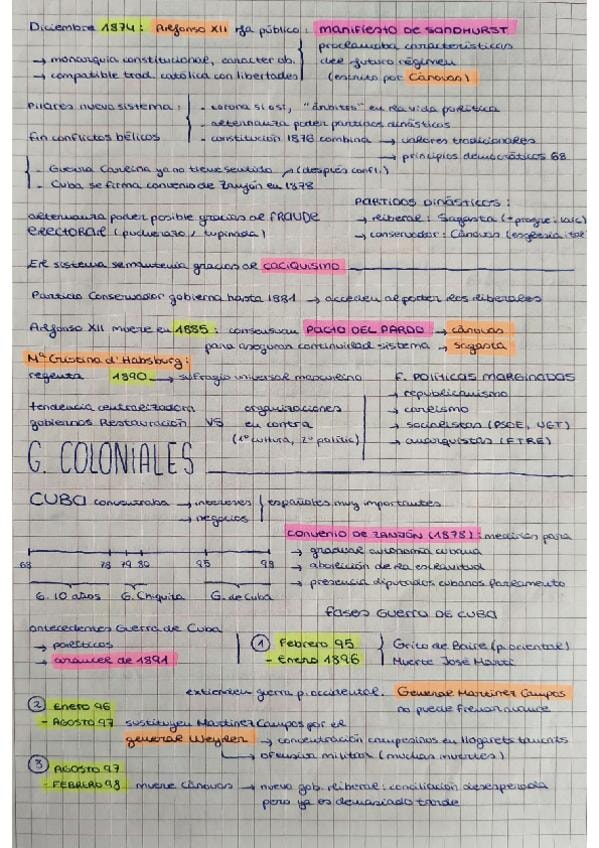 Diciembre 1874: Alfonso XII hja público: manifiesto de SANDHURST
→ monarquía constitucional, carácter ab.
→ compatible trad. católica con libertades
proclamaba características
del futuro régimen
(escrito por Cánovas)
Pilares nuevo sistema:
- corona sí est, "árbitro" en la vida política
- alternanza poder partidos dinásticos
- constitución 1876 combina → valores tradicionales
→ principios democráticos 68
fin conflictos bélicos
- Guerra Carlina ya no tiene sentido (después confl.)
- Cuba se firma convenio de Zanjón en 1878
alternanza poder posible gracias al FRAUDE
ELECTORAL (pucherazo / tupinada)
PARTIDOS DINÁSTICOS:
→ liberal: Sagasta (+ progre. laic)
→ conservador: Cánovas (esglesia
El sistema se mantenía gracias al CACIQUISMO
Partido Conservador gobierna hasta 1881 → acceden al poder los liberales
Alfonso XII muere en 1885: consensuan PACTO DEL PARDO → Cánovas
para asegurar continuidad sistema → Sagasta
Mª Cristina d'Habsburg:
regenta 1890 → sufragio universal masculino
tendencia centralizadora
gobiernos Restauración
VS
organizaciones
en contra
(1º cultura, 2º polític)
F. POLÍTICAS MARGINADAS
→ republicanismo
→ carlismo
→ socialistas (PSOE, UGT)
→ anarquistas (FTRE)
G. COLONIALES
CUBA concentraba → intereses
→ negocios
españoles muy importantes
CONVENIO DE ZANJÓN (1878): medidas para
→ gradual autonomía cubana
→ abolición de la esclavitud
→ presencia diputados cubanos Parlamento
68 78 79 80 95 98
G. 10 años G. Chiquita G. de Cuba
fases GUERRA DE CUBA
antecedentes Guerra de Cuba
→ políticos
→ arancel de 1891
① Febrero 95
- Enero 1896
Grito de Baire (p. oriental)
Muerte José Martí
extienden guerra p. occidental. General Martínez Campos
no puede frenar avance
② Enero 96
- AGOSTO 97 sustituyen Martínez Campos por el
general Weyler → concentración campesinos en llogarets tancats
→ ofensiva militar (muchas muertes)
③ AGOSTO 97
- FEBRERO 98 muere Cánovas → nuevo gob. liberal: conciliación desesperada
pero ya es demasiado tarde